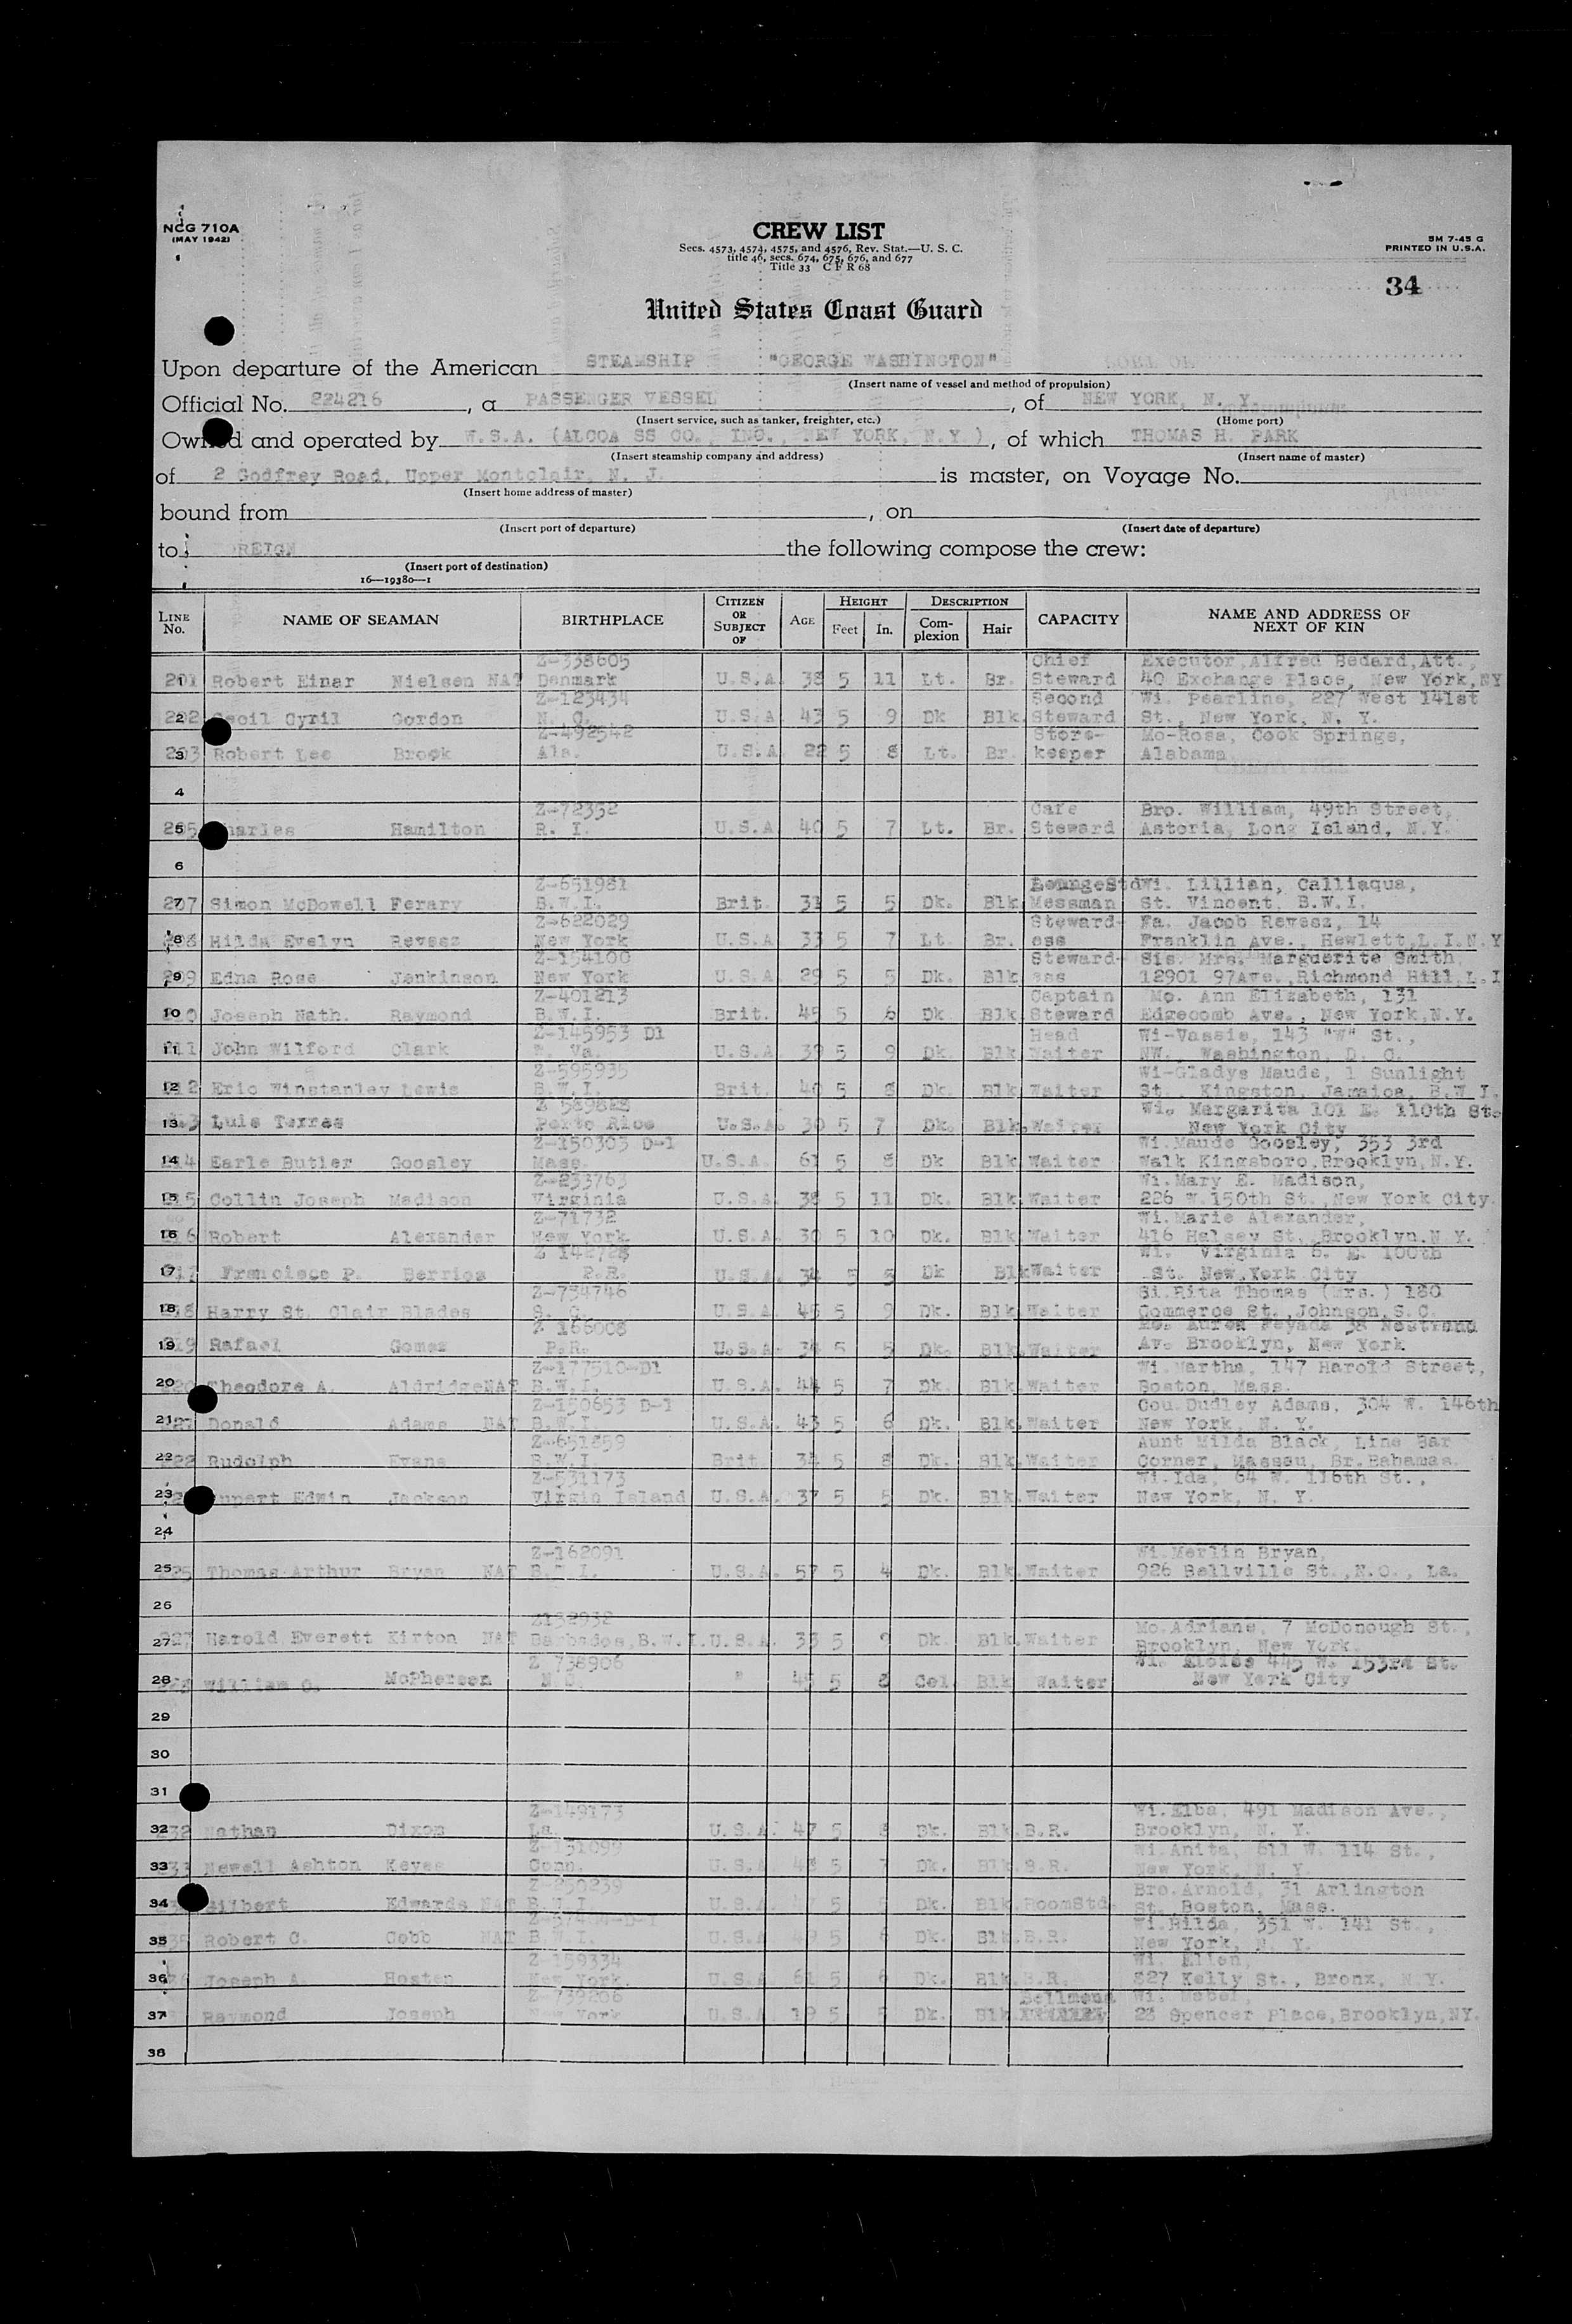 NCG 710A
(MAY 1942)
CREW LIST
Secs. 4573, 4574, 4575, and 4576, Rev. Stat.—U. S. C.
title 46, secs. 674, 675, 676, and 677
Title 33 C F R 68
5M 7-45 G
PRINTED IN U.S.A.
34
United States Coast Guard
Upon departure of the American STEAMSHIP "GEORGE WASHINGTON"
(Insert name of vessel and method of propulsion)
Official No. 224216, a PASSENGER VESSEL, of NEW YORK, N. Y.
(Insert service, such as tanker, freighter, etc.) (Home port)
Owned and operated by W.S.A. (ALCOA SS CO., INC., NEW YORK, N.Y.), of which THOMAS H. PARK
(Insert steamship company and address) (Insert name of master)
of 2 Godfrey Road, Upper Montclair, N. J. is master, on Voyage No.
(Insert home address of master)
bound from , on
(Insert port of departure) (Insert date of departure)
to FOREIGN the following compose the crew:
(Insert port of destination)
16—19380—1
LINE No. NAME OF SEAMAN BIRTHPLACE CITIZEN OR SUBJECT OF AGE HEIGHT Feet In. DESCRIPTION Complexion Hair CAPACITY NAME AND ADDRESS OF NEXT OF KIN
Z-338605 Chief Executor,Alfred Bedard,Att.,
201 Robert Einar Nielsen NAT Denmark U.S.A. 38 5 11 Lt. Br. Steward 40 Exchange Place, New York,NY
Z-123434 Second Wi. Pearline, 227 West 141st
2 Cecil Cyril Gordon N. C. U.S.A. 43 5 9 Dk Blk. Steward St., New York, N. Y.
Z-492542 Store- Mo-Rosa, Cook Springs,
3 Robert Lee Brook Ala. U.S.A. 22 5 8 Lt. Br. keeper Alabama
4
Z-72352 Cafe Bro. William, 49th Street,
5 Charles Hamilton R. I. U.S.A. 40 5 7 Lt. Br. Steward Astoria, Long Island, N.Y.
6
Z-651981 LoungeStd Wi. Lillian, Calliaqua,
207 Simon McDowell Ferary B.W.I. Brit. 31 5 5 Dk. Blk Messman St. Vincent, B.W.I.
Z-622029 Steward- Fa. Jacob Revesz, 14
8 Hilda Evelyn Revesz New York U.S.A. 33 5 7 Lt. Br. ess Franklin Ave., Hewlett,L.I.N.Y
Z-154100 Steward- Sis. Mrs. Marguerite Smith
9 Edna Rose Jenkinson New York U.S.A. 29 5 5 Dk. Blk ess 12901 97Ave.,Richmond Hill,L.I
Z-401213 Captain Mo. Ann Elizabeth, 131
10 Joseph Nath. Raymond B.W.I. Brit. 45 5 6 Dk Blk Steward Edgecomb Ave., New York,N.Y.
Z-145953 D1 Head Wi-Vassie, 143 "W" St.,
11 John Wilford Clark W. Va. U.S.A. 39 5 9 Dk. Blk Waiter NW., Washington, D. C.
Z-595935 Wi-Gladys Maude, 1 Sunlight
12 Eric Winstanley Lewis B.W.I. Brit. 40 5 8 Dk. Blk Waiter St., Kingston, Jamaica, B.W.I.
Wi. Margarita 101 E. 110th St.
13 Luis Torres Porto Rico U.S.A. 30 5 7 Dk. Blk. Waiter New York City
Z-150303 D-1 Wi.Maude Goosley, 353 3rd
14 Earle Butler Goosley Mass. U.S.A. 61 5 8 Dk Blk Waiter Walk Kingsboro,Brooklyn,N.Y.
Z-233763 Wi.Mary E. Madison,
15 Collin Joseph Madison Virginia U.S.A. 38 5 11 Dk. Blk. Waiter 226 W.150th St.,New York City.
Z-71732 Wi.Marie Alexander,
16 Robert Alexander New York U.S.A. 30 5 10 Dk. Blk. Waiter 416 Halsey St.,Brooklyn.N.Y.
Wi. Virginia E. 100th
17 Francisco P. Berrios P.R. U.S.A. 34 5 5 Dk Blk Waiter St. New York City
Z-754746 Si.Rita Thomas (Mrs.) 180
18 Harry St. Clair Blades S. C. U.S.A. 45 5 9 Dk. Blk. Waiter Commerce St.,Johnson,S.C.
Z 166008
19 Rafael Gomez P.R. U.S.A. 34 5 5 Dk. Blk. Waiter Ave Brooklyn, New York
Z-177510-D1 Wi.Martha, 147 Harold Street,
20 Theodore A. Aldridge NAT B.W.I. U.S.A. 44 5 7 Dk. Blk. Waiter Boston, Mass.
Z-150653 D-1 Cou.Dudley Adams, 304 W. 146th
21 Donald Adams NAT B.W.I. U.S.A. 43 5 6 Dk. Blk. Waiter New York, N. Y.
Z-651859 Aunt Milda Black, Line Bar
22 Rudolph Evans B.W.I. Brit. 34 5 8 Dk. Blk. Waiter Corner, Massau, Br.Bahamas.
Z-531173 Wi.Ida, 64 W. 116th St.,
23 Rupert Edwin Jackson Virgin Island U.S.A. 37 5 5 Dk. Blk. Waiter New York, N. Y.
24
Z-162091 Wi.Merlin Bryan,
25 Thomas Arthur Bryan NAT B.W.I. U.S.A. 57 5 4 Dk. Blk. Waiter 926 Bellville St.,N.O., La.
26
Z132932 Mo.Adriane, 7 McDonough St.,
27 Harold Everett Kirton NAT Barbados,B.W.I. U.S.A. 33 5 9 Dk. Blk. Waiter Brooklyn, New York.
Z 738906 Wi. Aloise 445 W. 153rd St.
28 William O. McPherson " 45 5 8 Col. Blk Waiter New York City
29
30
31
Z-149173 Wi.Elba, 491 Madison Ave.,
32 Nathan Dixon La. U.S.A. 47 5 8 Dk. Blk. B.R. Brooklyn, N. Y.
Z-131099 Wi.Anita, 611 W. 114 St.,
33 Newell Ashton Keyes Conn. U.S.A. 48 5 7 Dk. Blk. B.R. New York, N. Y.
Z-250239 Bro.Arnold, 31 Arlington
34 Gilbert Edwards NAT B.W.I. U.S.A. 5 Dk. Blk. RoomStd. St., Boston, Mass.
Wi.Hilda, 351 W. 141 St.,
35 Robert C. Cobb NAT B.W.I. U.S.A. 49 5 6 Dk. Blk. B.R. New York, N. Y.
Z-159334 Wi. Ellen,
36 Joseph A. Hosten New York. U.S.A. 61 5 6 Dk. Blk. B.R. 827 Kelly St., Bronx, N.Y.
Z-739206 Bellmend Wi. Mabel,
37 Raymond Joseph New York U.S.A. 19 5 5 Dk. Blk. 23 Spencer Place,Brooklyn,NY.
38